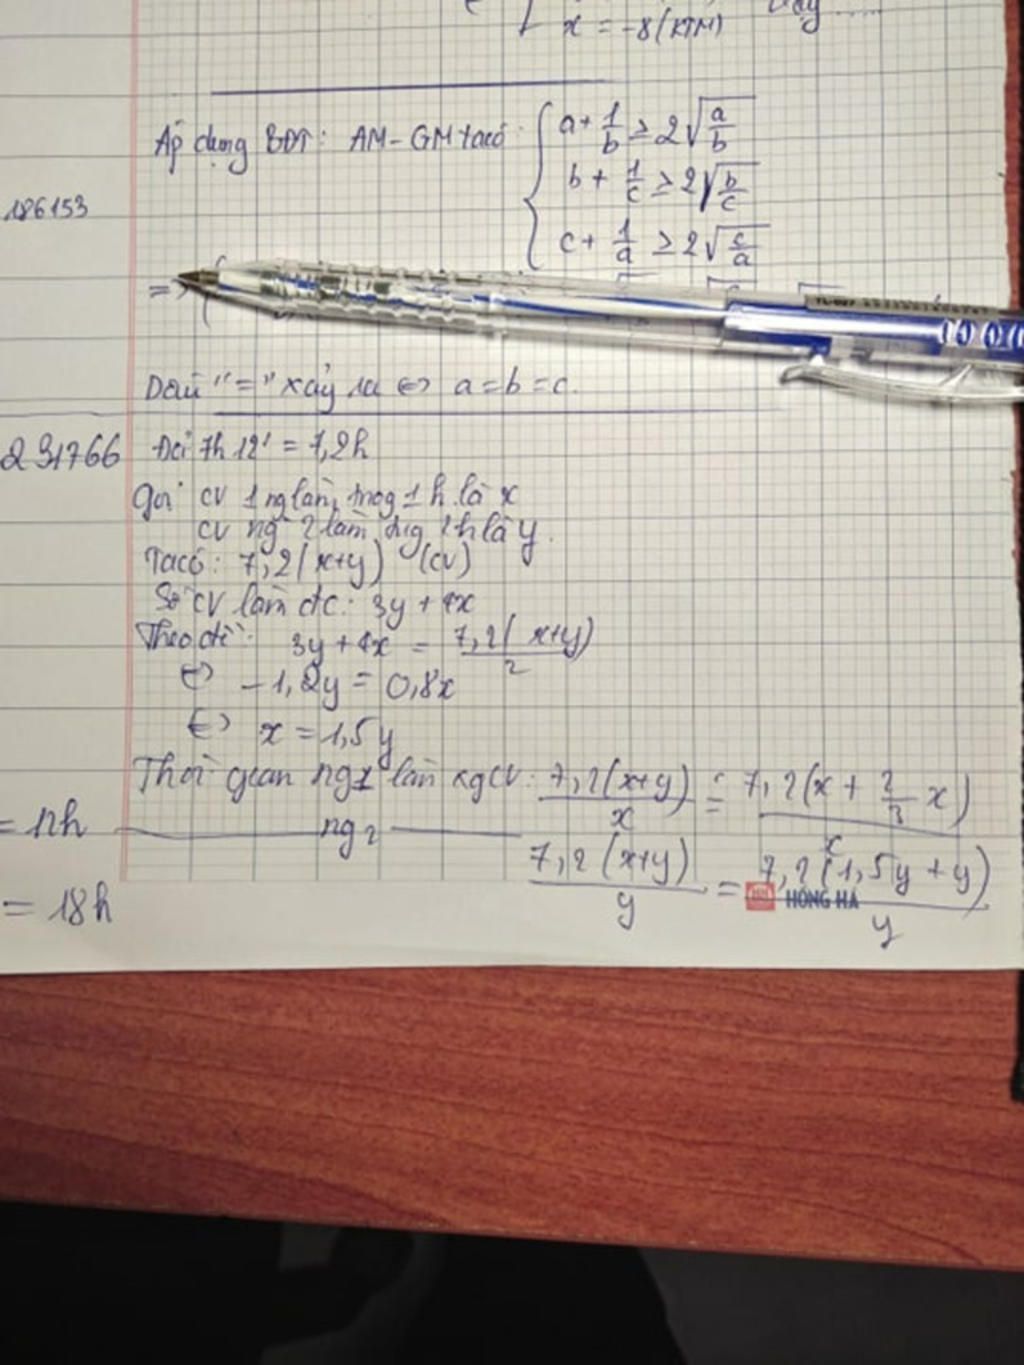 x = -8 (KTM) Vậy .....
Áp dụng BĐT: AM-GM ta có: { a + 1/b ≥ 2√(a/b)
b + 1/c ≥ 2√(b/c)
186153
c + 1/a ≥ 2√(c/a)
=>
Dấu "=" xảy ra <=> a = b = c.
231766 Đổi 7h 12' = 7,2h
Gọi cv 1 ng làm trog 1h là x
cv ng 2 làm trg 1h là y.
Ta có: 7,2(x+y) (cv)
Số cv làm đc: 3y + 4x
Theo đề: 3y + 4x = 7,2(x+y)/2
<=> -1,2y = 0,8x
<=> x = 1,5y
Thời gian ng1 làm xg cv: 7,2(x+y)/x = 7,2(x + 2/3 x)/x
= 12h ng2 7,2(x+y)/y = 7,2(1,5y+y)/y
HỒNG HÀ
= 18h